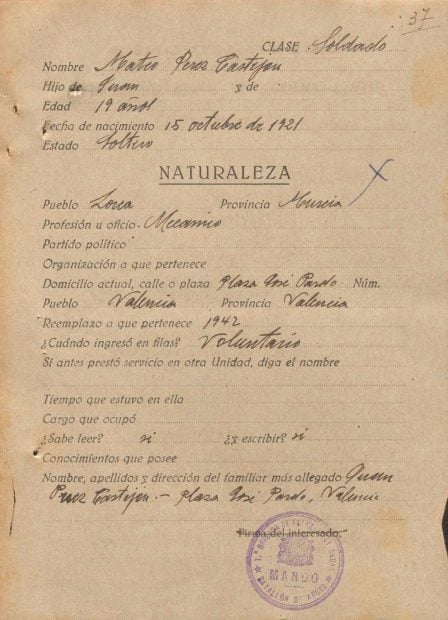 37
CLASE Soldado
Nombre Mateo Perez Castejon
Hijo de Juan y de
Edad 19 años
Fecha de nacimiento 15 octubre de 1921
Estado Soltero
NATURALEZA
Pueblo Lorca Provincia Murcia
Profesión u oficio Mecanico
Partido político
Organización a que pertenece
Domicilio actual, calle o plaza Plaza José Pardo Núm.
Pueblo Valencia Provincia Valencia
Reemplazo a que pertenece 1942
¿Cuándo ingresó en filas? Voluntario
Si antes prestó servicio en otra Unidad, diga el nombre
Tiempo que estuvo en ella
Cargo que ocupó
¿Sabe leer? si ¿y escribir? si
Conocimientos que posee
Nombre, apellidos y dirección del familiar más allegado Juan
Perez Castejon.- Plaza José Pardo, Valencia
Firma del interesado,
MANDO
BATALLÓN DE APOYO